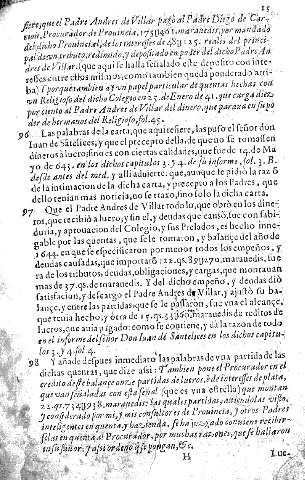 15
fiere, que el Padre Andres de Villar pagò al Padre Diego de Car-
mona, Procurador de Provincia, maravedis, por mandado
del dicho Provincial, de los interesses de reales del princi-
pal de un tributo redimido, y depositado en poder del dicho Padre An-
dres de Villar. (que aqui se halla señalado este deposito con inte-
resses entre ellos mismos, como tambien queda ponderado arri-
ba) Y porque tambien ay un papel particular de quentas hechas con
un Religioso del dicho Colegio en 27. de Enero de 41. que carga diez
por ciento al Padre Andres de Villar del dinero, que parava en su po-
der de hermanos del Religioso, fol. 45.
96 Las palabras de la carta, que aqui refiere, las puso el señor don
Iuan de Sātelices, y que el precepto della, de que no se tomassen
dineros à lucro, sino es con ciertas calidades, que fue de 14. de Ma
yo de 643. en los dichos capitulos 3. y 4. de su informe, fol. 3. B.
desde antes del med. y alli advierte: que, aunque le pidiò la razō
de la intimacion de la dicha carta, y precepto a los Padres, que
dello tenian mas noticia, no se trajo, sino solo la dicha carta.
97 Que el Padre Andres de Villar todo lo, que obrò en los dine-
ros, que recibiò a lucro, y sin el, y deudas que causò, fue con sabi-
duria, y aprovacion del Colegio, y sus Prelados, es hecho inne-
gable por las quentas, que se le tomaron, y balance del año de
1644. en que se especificaron por menor todos los empeños, y
deudas causadas, que importarō 122. qs. maravedis, fue-
ra de los tributos, deudas, obligaciones, y cargas, que montavan
mas de 37. qs. de maravedis. Y del dicho empeño, y deudas diò
satisfacion, y descargo el Padre Andres de Villar, y ajustò su ba-
lance, y entre las partidas, que se le passaron, fue una el alcance,
que tenia hecho, y bera de 15. qs. maravedis de reditos de
lucros, que avia pagado: como se contiene, y dà la razon de todo
en el informe del señor Don Iuan de Santelices en los dichos capitu-
los 3. y 4. fol. 4.
98 Y añade despues inmediato las palabras de una partida de las
dichas quentas, que dize assi: Tambien pone el Procurador en el
credito deste balance onze partidas de lucros, ò de interesses de plata,
que van señaladas con esta señal (que es una estrella) que montan
22. qs. maravedis: las quales partidas, aviendolas visto,
y considerado por mi, y mis consultores de Provincia, y otros Padres
inteligentes en quenta y hazienda, se ha juzgado convenir recibir-
selas en quenta al Procurador, por muchas razones, que se hallaron
en su favor: y assi ordenò que se pongan, &c.
H Luc-